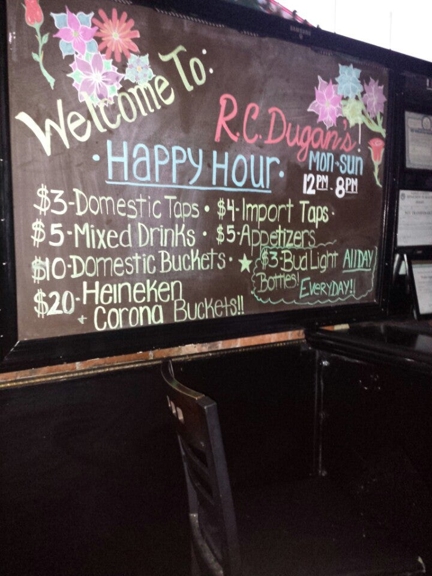 Welcome To:
R.C. Dugan's!
· Happy Hour · Mon-Sun
12PM - 8PM
$3-Domestic Taps · $4-Import Taps ·
$5-Mixed Drinks · $5-Appetizers
$10-Domestic Buckets · ★ $3-Bud Light All DAY
Bottles! EVERYDAY!!
$20-Heineken
+ Corona Buckets!!